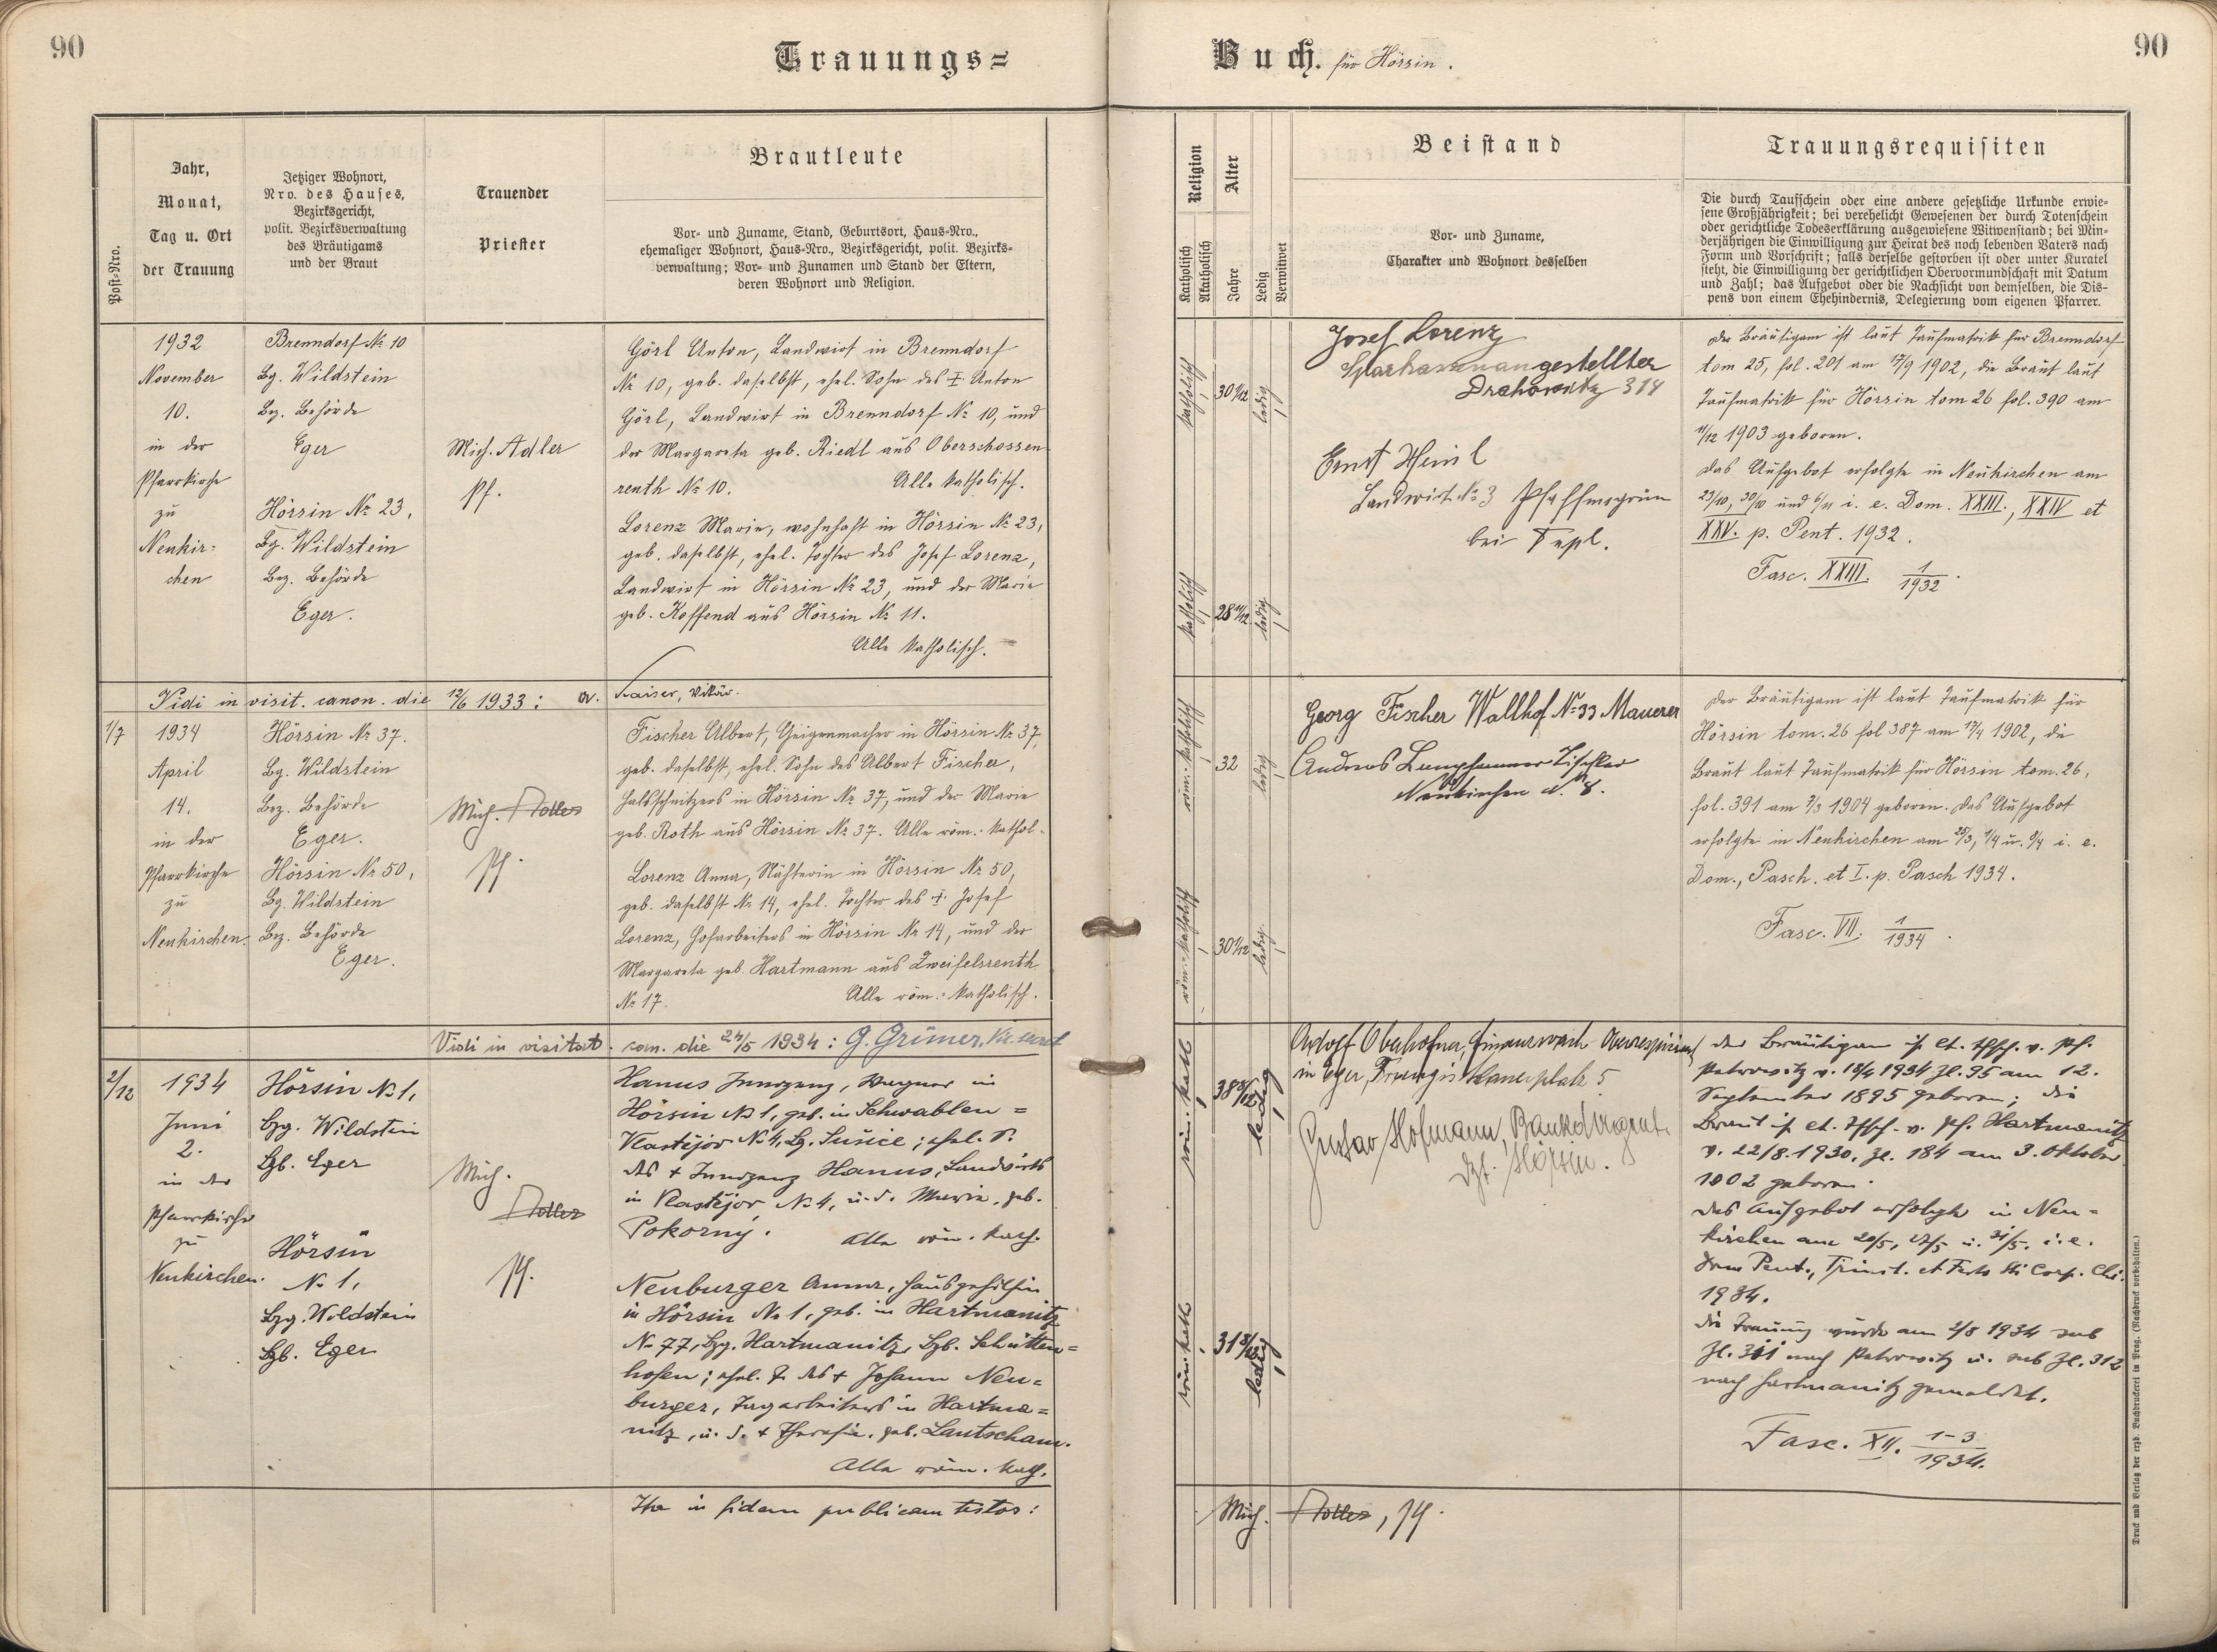 90
Trauungs=
Buch. für Hörsin.
90
Post-Nro.
Jahr,
Monat,
Tag u. Ort
der Trauung
Jetziger Wohnort,
Nro. des Hauses,
Bezirksgericht,
polit. Bezirksverwaltung
des Bräutigams
und der Braut
Trauender
Priester
Brautleute
Vor- und Zuname, Stand, Geburtsort, Haus-Nro.,
ehemaliger Wohnort, Haus-Nro., Bezirksgericht, polit. Bezirks-
verwaltung; Vor- und Zunamen und Stand der Eltern,
deren Wohnort und Religion.
Religion
Katholisch
Akatholisch
Alter
Jahre
Ledig
Verwitwet
Beistand
Vor- und Zuname,
Charakter und Wohnort desselben
Trauungsrequisiten
Die durch Taufschein oder eine andere gesetzliche Urkunde erwie-
sene Großjährigkeit; bei verehelicht Gewesenen der durch Totenschein
oder gerichtliche Todeserklärung ausgewiesene Witwenstand; bei Min-
derjährigen die Einwilligung zur Heirat des noch lebenden Vaters nach
Form und Vorschrift; falls derselbe gestorben ist oder unter Kuratel
steht, die Einwilligung der gerichtlichen Obervormundschaft mit Datum
und Zahl; das Aufgebot oder die Nachsicht von demselben, die Dis-
pens von einem Ehehindernis, Delegierung vom eigenen Pfarrer.
1932
November
10.
in der
Pfarrkirche
zu
Neukir=
chen
Brenndorf № 10
Bg. Wildstein
Bez. Behörde
Eger
Hörsin № 23,
Bg. Wildstein
Bez. Behörde
Eger.
Mich. Adler
Pf.
Görl Anton, Landwirt in Brenndorf
№ 10, geb. daselbst, ehel. Sohn des † Anton
Görl, Landwirt in Brenndorf № 10, und
der Margareta geb. Riedl aus Oberschossen-
renth № 10. Alle katholisch.
Lorenz Marie, wohnhaft in Hörsin № 23,
geb. daselbst, ehel. Tochter des Josef Lorenz,
Landwirt in Hörsin № 23, und der Marie
geb. Koffend aus Hörsin № 11.
Alle katholisch.
katholisch
30 1/12
ledig
katholisch
28 11/12
ledig
Josef Lorenz
Sparkassenangestellter
Drahowitz 314
Ernst Heinl
Landwirt № 3 Pfaffengrün
bei Tepl.
Der Bräutigam ist laut Taufmatrik für Brenndorf
tom 25, fol. 201 am 17/9 1902, die Braut laut
Taufmatrik für Hörsin tom 26 fol. 390 am
11/12 1903 geboren.
Das Aufgebot erfolgte in Neukirchen am
23/10, 30/10 und 6/11 i. e. Dom. XXIII., XXIV et
XXV. p. Pent. 1932.
Fasc. XXIII. 1/1932.
Vidi in visit. canon. die 12/6 1933: Kaiser, Vikär.
1/7
1934
April
14.
in der
Pfarrkirche
zu
Neukirchen.
Hörsin № 37.
Bg. Wildstein
Bez. Behörde
Eger.
Hörsin № 50,
Bg. Wildstein
Bez. Behörde
Eger.
Mich. Adler
Pf.
Fischer Albert, Geigenmacher in Hörsin № 37,
geb. daselbst, ehel. Sohn des Albert Fischer,
Halsschnitzers in Hörsin № 37, und der Marie
geb. Roth aus Hörsin № 37. Alle röm.-kathol.
Lorenz Anna, Näherin in Hörsin № 50,
geb. daselbst № 14, ehel. Tochter des † Josef
Lorenz, Hofarbeiters in Hörsin № 14, und der
Margareta geb. Hartmann aus Zweifelsrenth
№ 17. Alle röm.-katholisch.
röm.-katholisch
32
ledig
röm.-katholisch
30 1/12
ledig
Georg Fischer Wallhof № 33 Maurer
Andreas Tischler
Neukirchen № 8.
Der Bräutigam ist laut Taufmatrik für
Hörsin tom. 26 fol 387 am 13/4 1902, die
Braut laut Taufmatrik für Hörsin tom. 26,
fol. 391 am 3/3 1904 geboren. Das Aufgebot
erfolgte in Neukirchen am 25/3, 1/4 u. 8/4 i. e.
Dom., Pasch. et I. p. Pasch 1934.
Fasc. VII. 1/1934.
Vidi in visitat. can. die 24/5 1934: G. Grüner,
2/12
1934
Juni
2.
in der
Pfarrkirche
zu
Neukirchen.
Hörsin № 1,
Bzg. Wildstein
Bzb. Eger
Hörsin
№ 1,
Bzg. Wildstein
Bzb. Eger
Mich.
Adler
Pf.
Hanus Innozenz, Wagner in
Hörsin № 1, geb. in Schwablen=
Vlastějov № 4, Bz. Sušice; ehel. S.
des † Innozenz Hanus, Landwirts
in Vlastějov № 4, u. d. Marie, geb.
Pokorný. Alle röm. kath.
Neuburger Anna, Hausgehilfin
in Hörsin № 1, geb. in Hartmanitz
№ 77, Bzg. Hartmanitz, Bzb. Schütten=
hofen; ehel. T. des † Johann Neu=
burger, Tagarbeiters in Hartma=
nitz, u. d. † Theresie, geb. Lautscham.
Alle röm. kath.
röm. kath
38 8/12
ledig
röm. kath
31 8/12
ledig
Adolf Oberhofner, Finanzwach Oberrespizient
in Eger, 5
Gustav Hofmann,
dzt. Hörsin.
Der Bräutigam ist lt. Tfsch. v. Pf.
Petrowitz v. 18/4 1934 Zl. 95 am 12.
September 1895 geboren; die
Braut ist lt. Tfsch. v. Pf. Hartmanitz
v. 22/8. 1930, Zl. 184 am 3. Oktober
1902 geboren.
Das Aufgebot erfolgte in Neu=
kirchen am 20/5, 27/5 u. 31/5. i. e.
Dom Pent., Trinit. et Festo Ss Corp. Chi.
1934.
Die Trauung wurde am 2/8 1934 sub
Zl. 311 nach Petrowitz u. sub Zl. 312
nach Hartmanitz gemeldet.
Fasc. XII. 1-3/1934.
Ita in fidem publicam testor:
Mich. Adler, Pf.
Druck und Verlag der erzb. Buchdruckerei in Prag. (Nachdruck vorbehalten.)